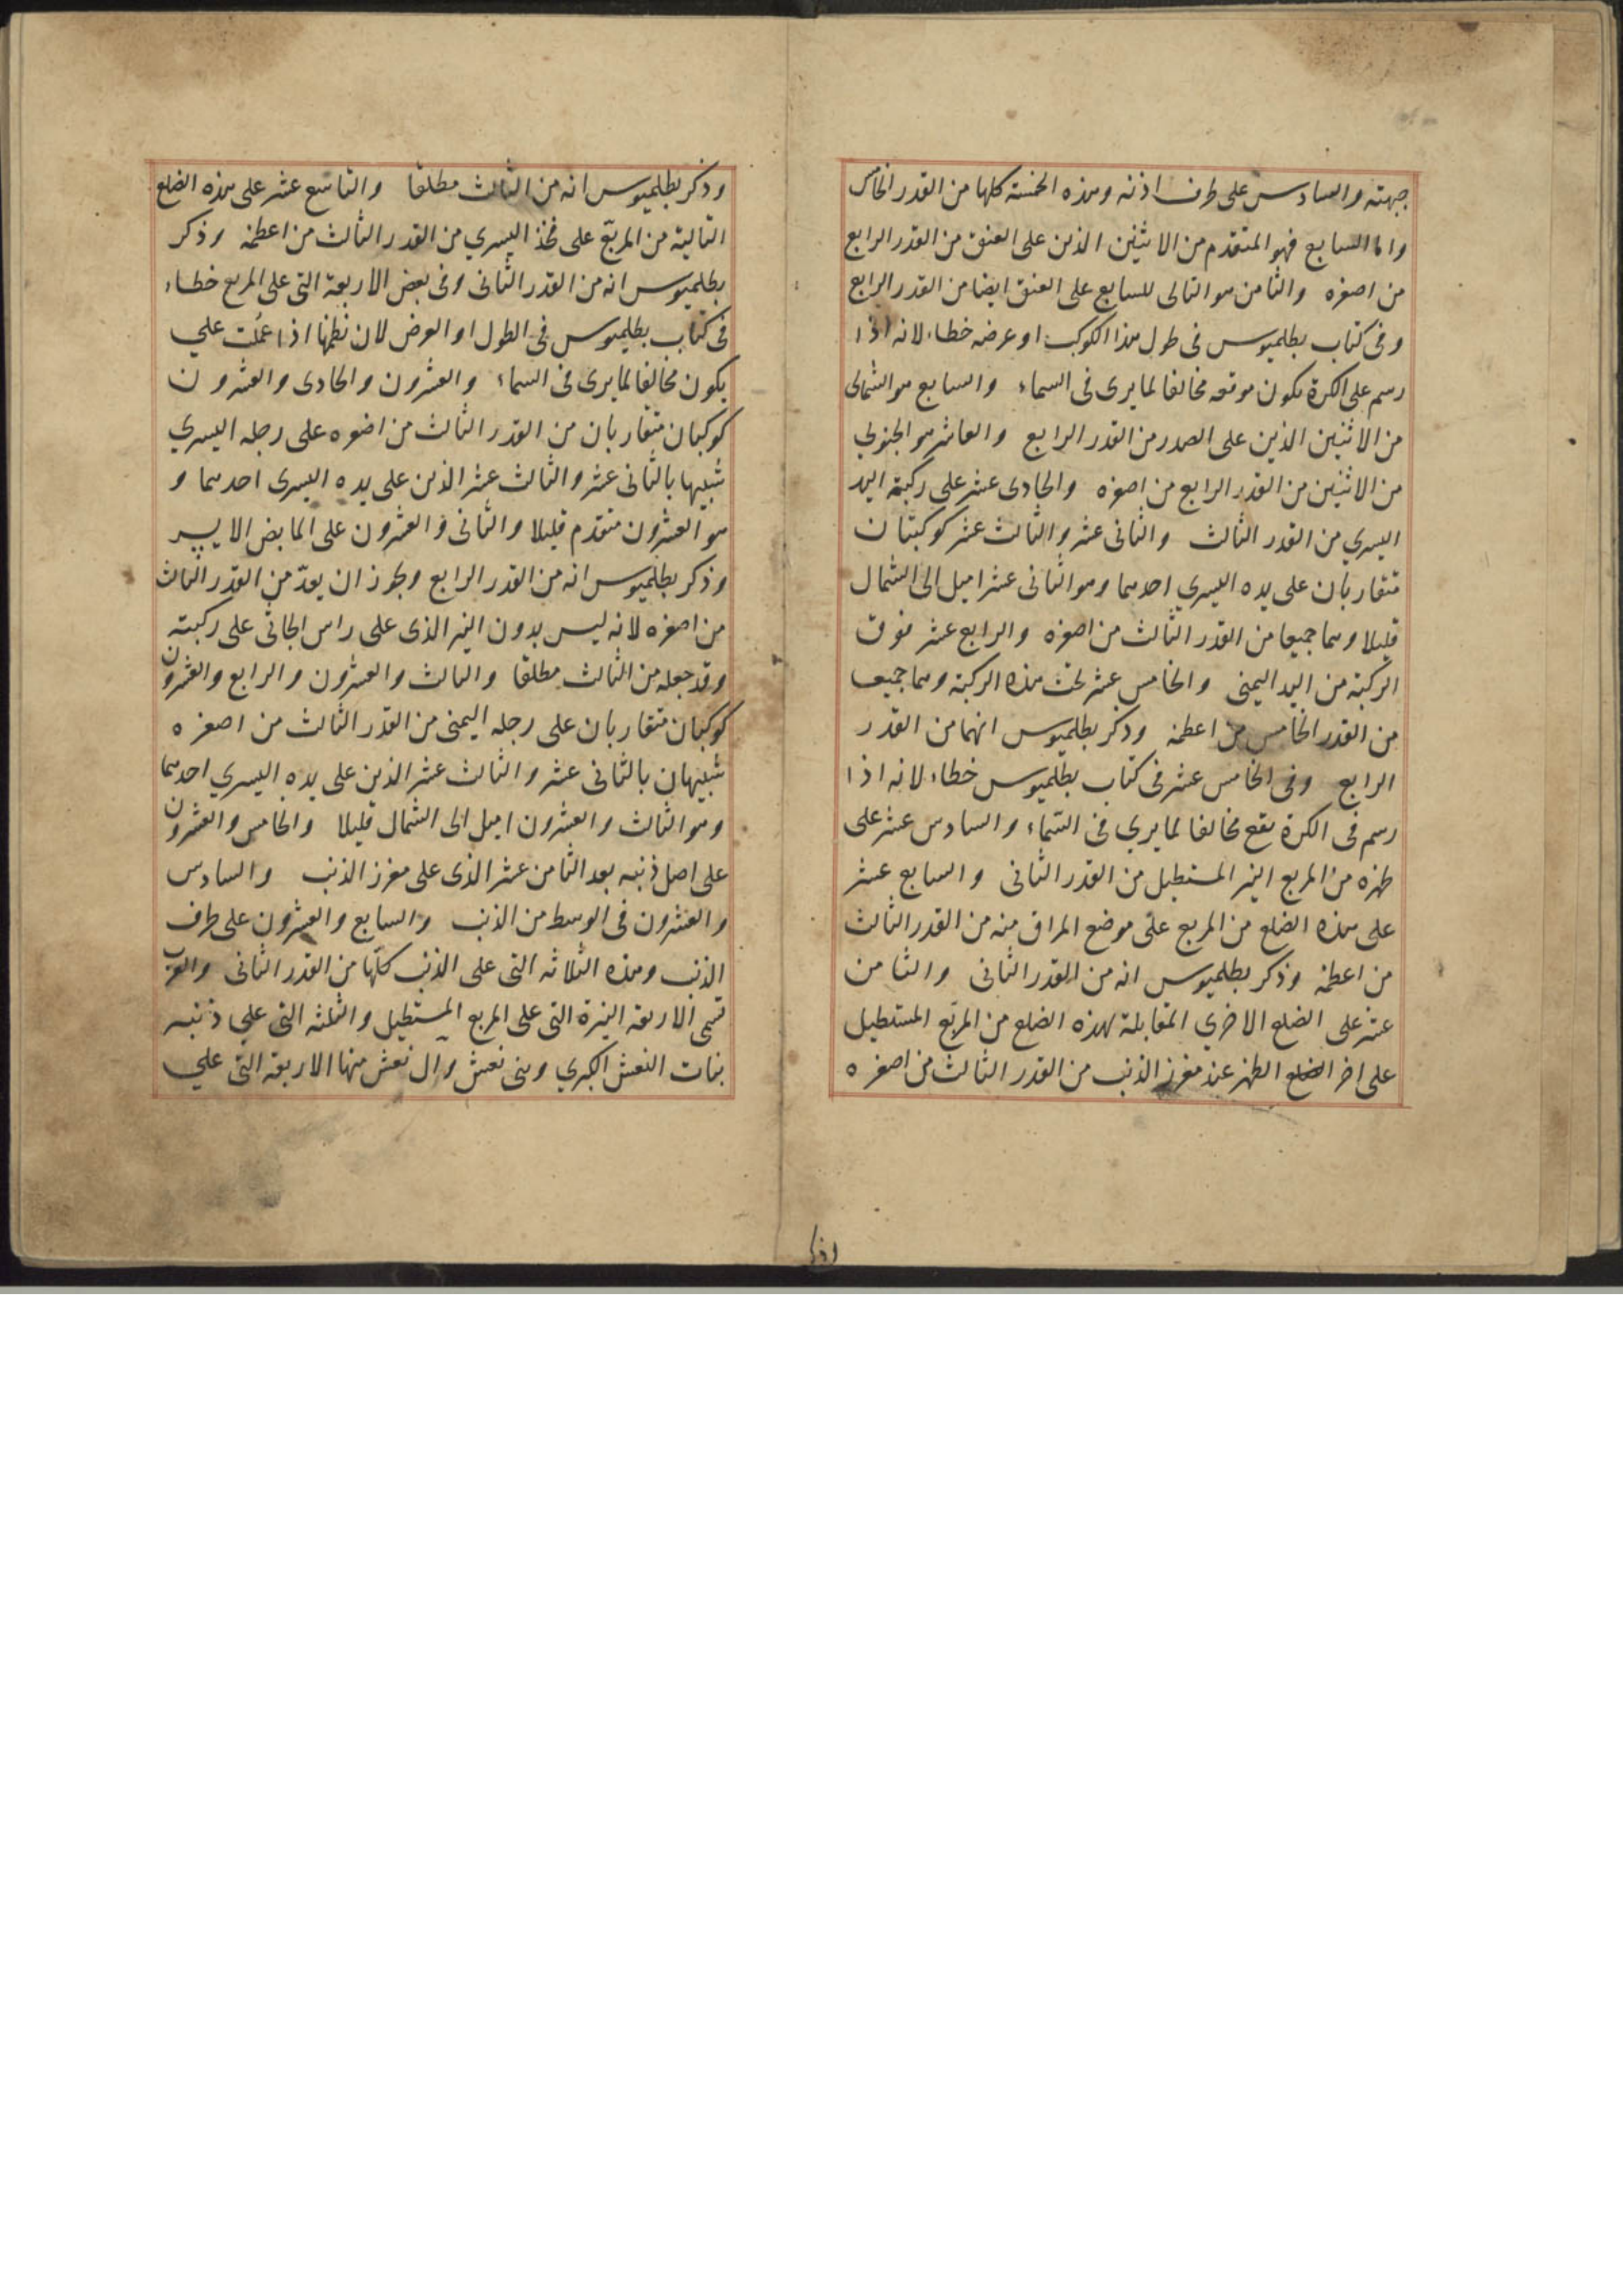 جبهته والسادس على طرف اذنه وهذه الخمسة كلها من القدر الخامس
واما السابع فهو المتقدم من الاثنين الذين على العنق من القدر الرابع
من اصغره والثامن هو التالى للسابع على العنق ايضا من القدر الرابع
وفى كتاب بطلميوس فى طول هذا الكوكب او عرضه خطاء لانه اذا
رسم على الكرة يكون موقعه مخالفا لما يرى فى السماء والسابع هو الشمالى
من الاثنين الذين على الصدر من القدر الرابع والعاشر هو الجنوبى
من الاثنين من القدر الرابع من اصغره والحادى عشر على ركبة اليد
اليسري من القدر الثالث والثانى عشر والثالث عشر كوكبتان
متقاربان على يده اليسري احدهما وهو الثانى عشر اميل الى الشمال
قليلا وهما جميعا من القدر الثالث من اصغره والرابع عشر فوق
الركبة من اليد اليمنى والخامس عشر تحت هذه الركبة وهما جميعا
من القدر الخامس من اعظمه وذكر بطلميوس انهما من القدر
الرابع وفى الخامس عشر فى كتاب بطلميوس خطاء لانه اذا
رسم فى الكرة يقع مخالفا لما يري فى السّماء والسادس عشر على
ظهره من المربع النير المستطيل من القدر الثانى والسابع عشر
على هذه الضلع من المربع على موضع المراق منه من القدر الثالث
من اعظمه وذكر بطلميوس انه من القدر الثانى والثامن
عشر على الضلع الاخري المقابلة لهذه الضلع من المربّع المستطيل
على اخر الضلع الظهر عند مغرز الذنب من القدر الثالث من اصغره
وذكر بطلميوس انه من الثالث مطلقا والتاسع عشر على هذه الضلع
التالية من المربّع على فخذ اليسري من القدر الثالث من اعظمه وذكر
بطلميوس انه من القدر الثانى وفى بعض الاربعة التى على المربع خطاء
فى كتاب بطلميوس فى الطول او العرض لان نظمها اذا عُملت علي
يكون مخالفا لما يرى فى السماء والعشرون والحادى والعشرون
كوكبان متقاربان من القدر الثالث من اضوه على رجله اليسري
شبيها بالثانى عشر والثالث عشر الذين على يده اليسرى احدهما و
هو العشرون متقدم قليلا والثانى والعشرون على المابض الايسر
وذكر بطلميوس انه من القدر الرابع ويجوز ان يعدّ من القدر الثالث
من اصغره لانه ليس بدون النير الذى على راس الجاثى على ركبته
وقد جعله من الثالث مطلقا والثالث والعشرون والرابع والعشرون
كوكبان متقاربان على رجله اليمنى من القدر الثالث من اصغره
شبيهان بالثانى عشر والثالث عشر الذين على يده اليسري احدهما
وهو الثالث والعشرون اميل الى الشمال قليلا والخامس والعشرون
على اصل ذنبه بعد الثامن عشر الذى على مغرز الذنب والسادس
والعشرون فى الوسط من الذنب والسابع والعشرون على طرف
الذنب وهذه الثلاثه التى على الذنب كلّها من القدر الثانى والعرب
تسمى الاربعة النيرة التى على المربع المستطيل والثلثه التى على ذنبه
بنات النعش الكبري وبنى نعش وال نعش منها الاربعة التى علي